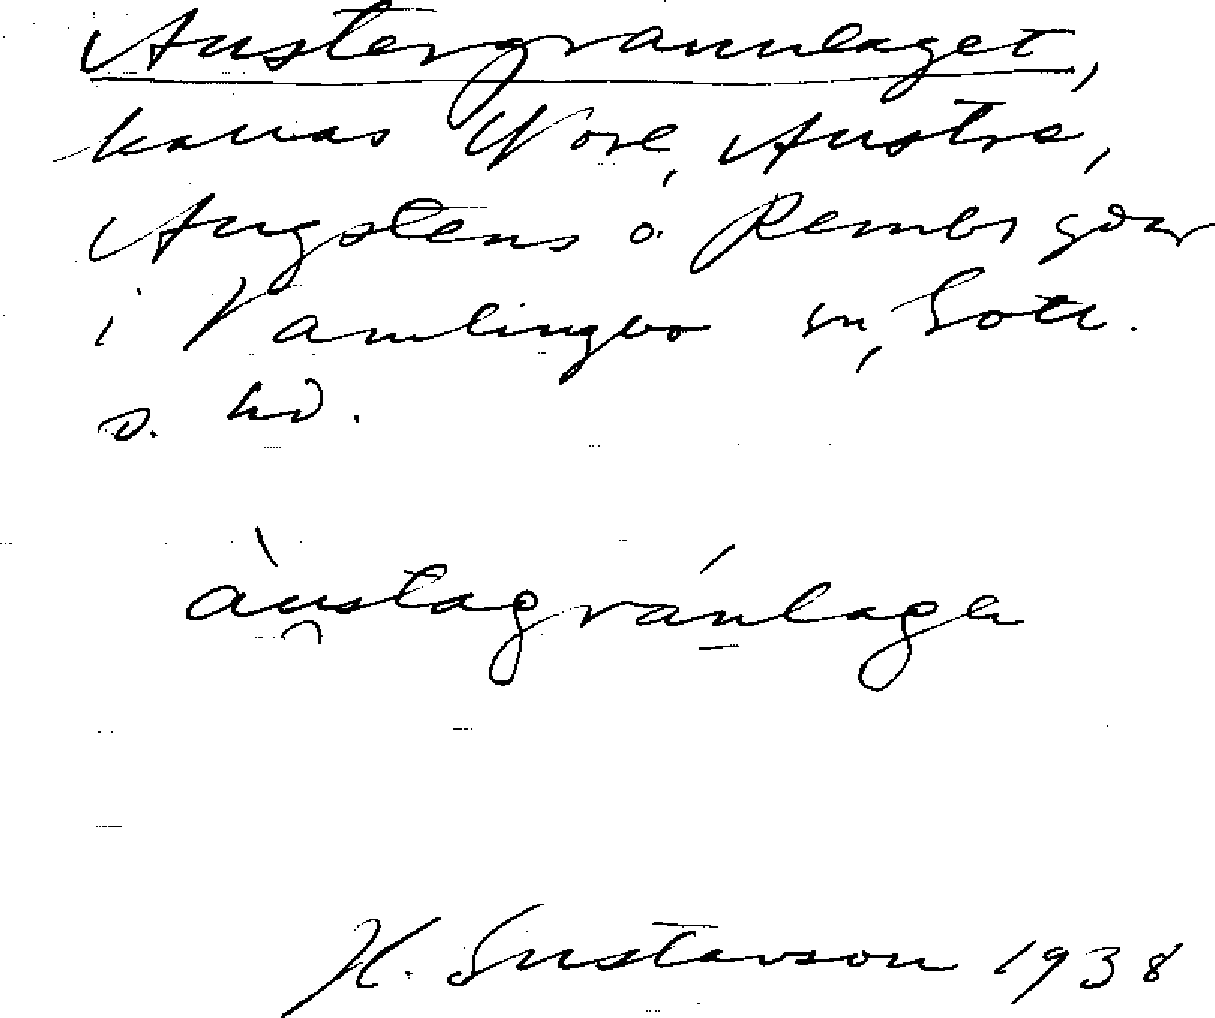 Austergrannlaget,
kallas Nore, Austre,
Augstens o. Rembs gdar
i Vamlingbo sn, Gotl.
s. hd.
àu̯stagránlage
H. Gustavson 1938